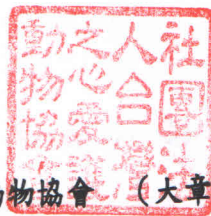 社團法
人台灣
之心愛護
動物協會
物協會（大章